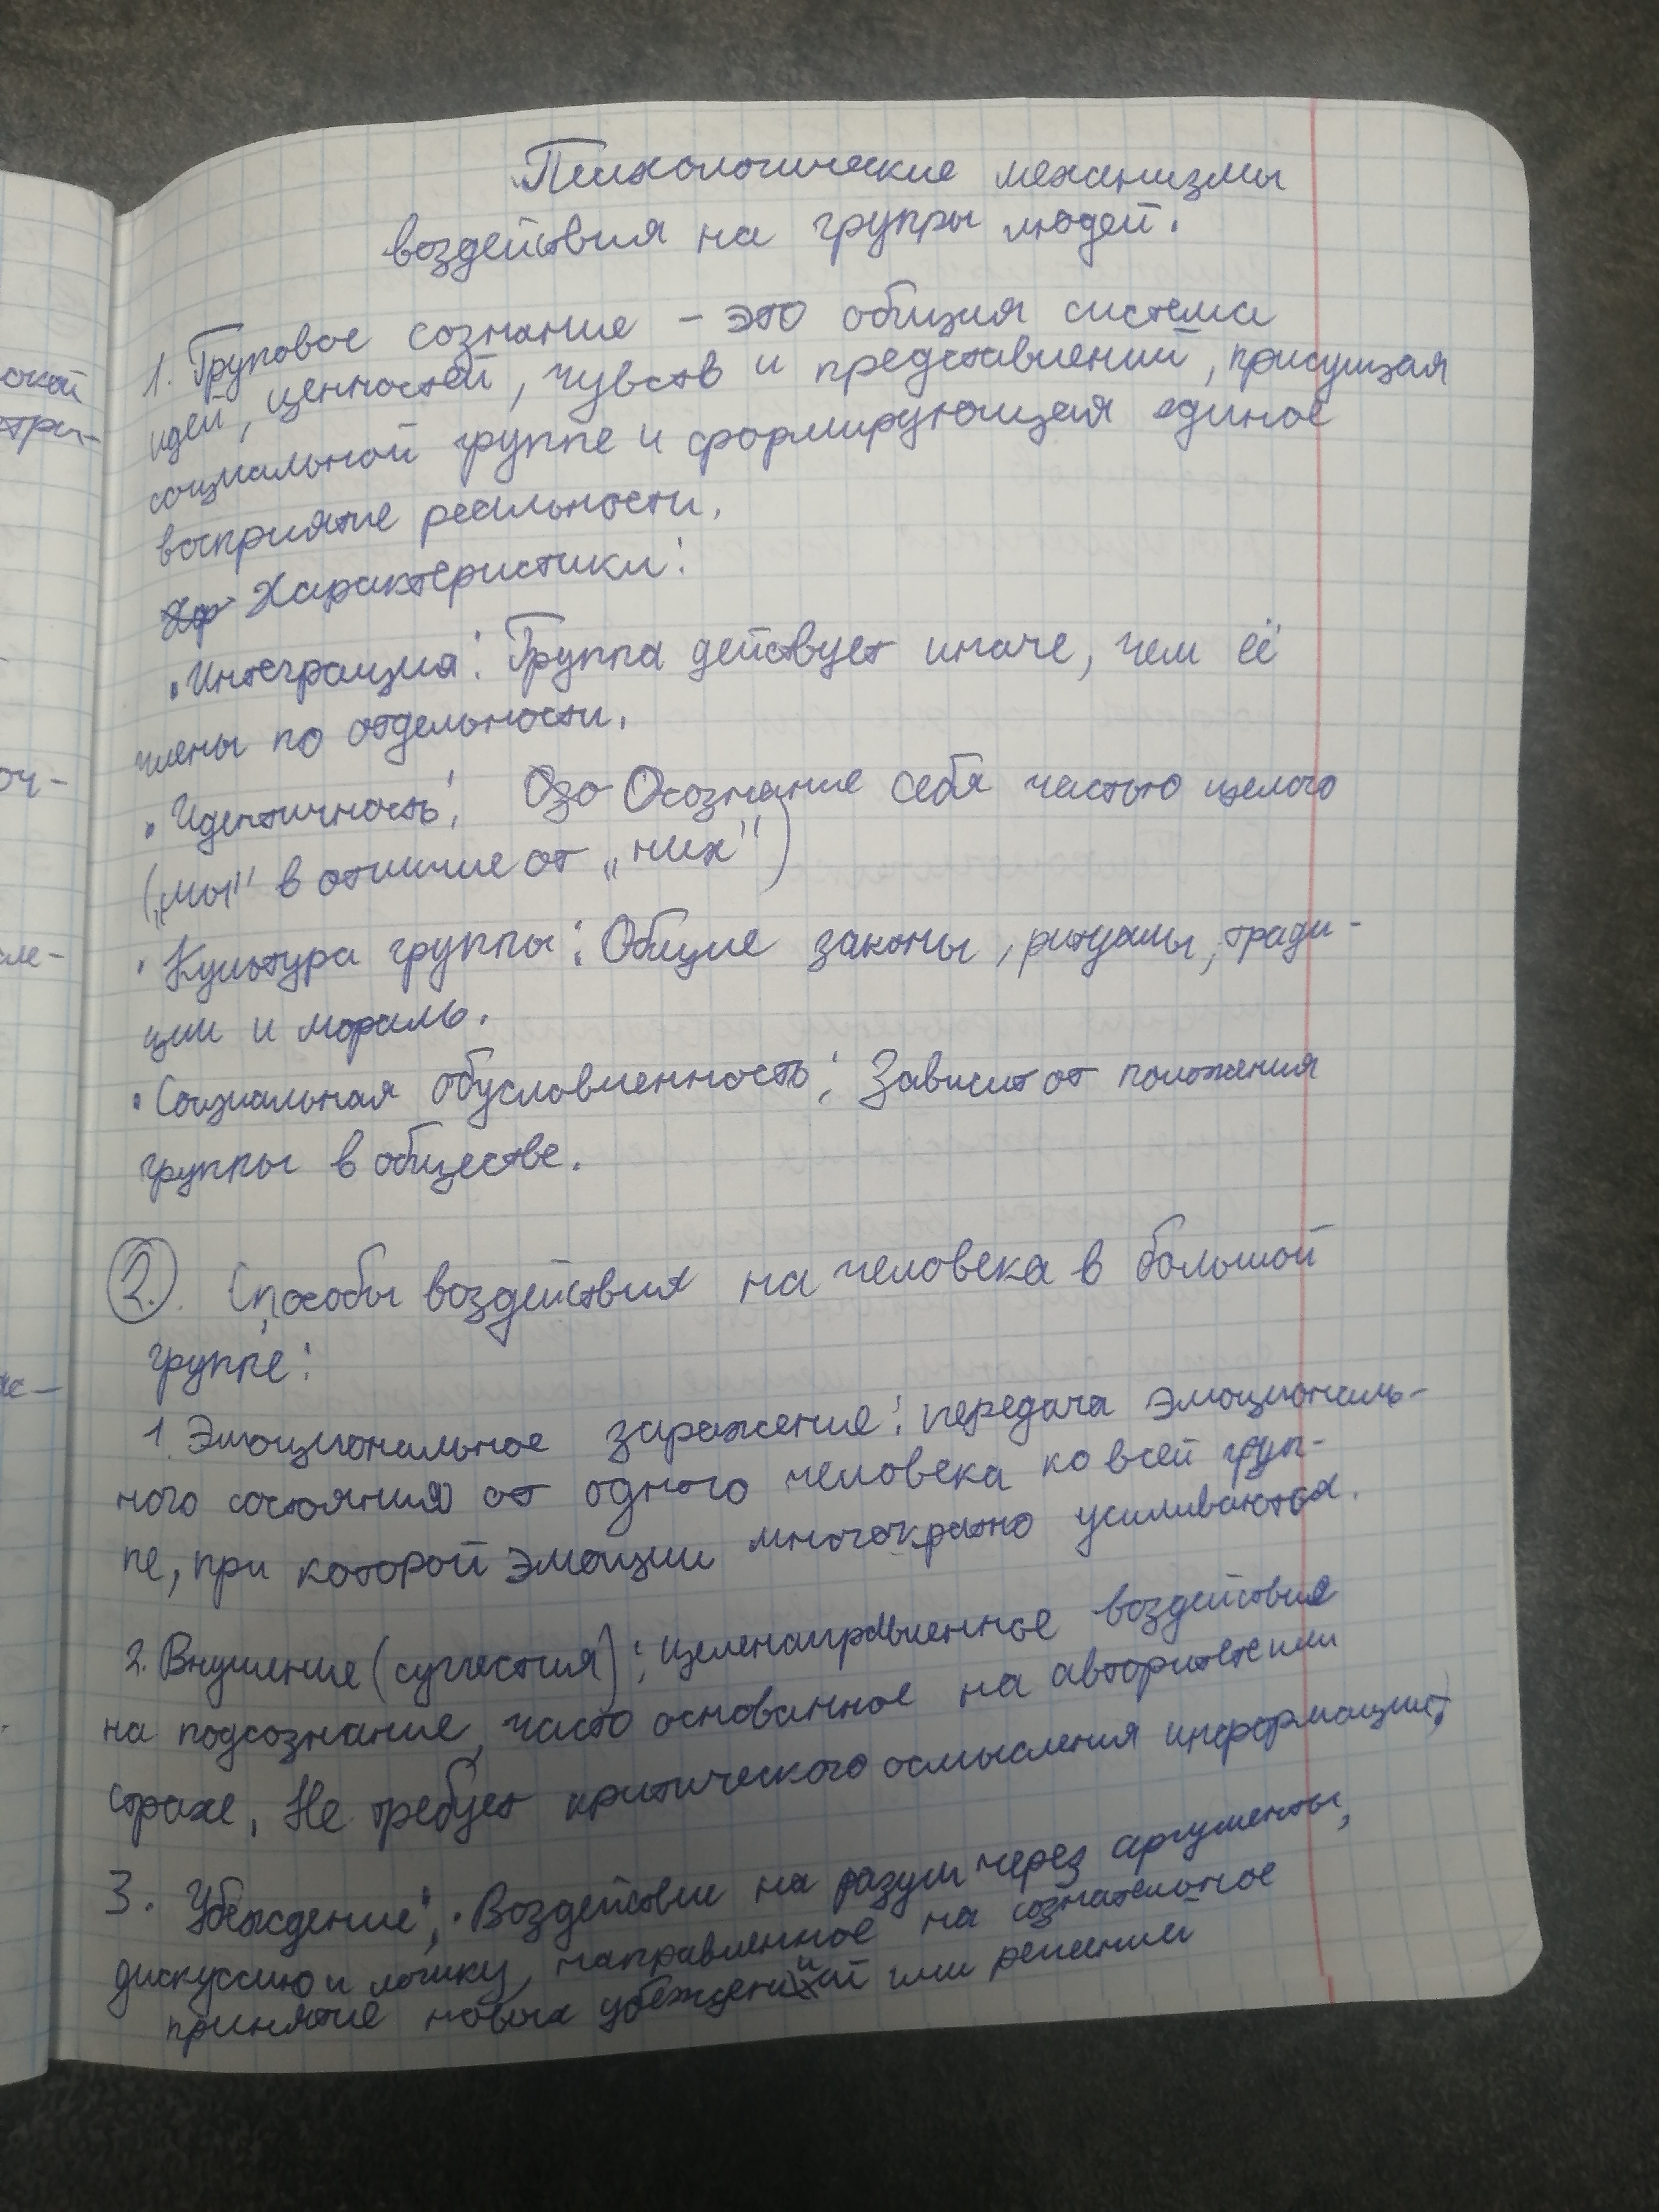 Психологические механизмы
воздействия на группы людей.
1. Груповое сознание - это общая система
идей, ценностей, чувств и представлений, присущая
социальной группе и формирующая единое
восприятие реальности.
Хар Характеристики:
• Интеграция: Группа действует иначе, чем её
члены по отдельности.
• Идентичность: Озо Осознание себя частью целого
(„мы" в отличие от „них")
• Культура группы: Общие законы, ритуалы, тради-
ции и мораль.
• Социальная обусловленность: Зависит от положения
группы в обществе.
2. Способы воздействия на человека в большой
группе:
1. Эмоциональное заражение: передача эмоциональ-
ного состояния от одного человека ко всей груп-
пе, при которой эмоции многократно усиливаются.
2. Внушение (суггестия): целенаправленное воздействие
на подсознание, часто основанное на авторитете или
страхе. Не требует критического осмысления информации.
3. Убеждение: Воздействие на разум через аргументы,
дискуссию и логику, направленное на сознательное
принятие новых убеждений или решений
окой
стри-
оч-
сле-
же-